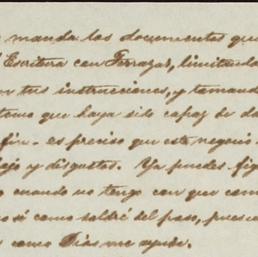 manda los documentos que
Escritura con Terrazas, limitada
tus instrucciones, y tomando
que haya sido capaz de da
fin - es preciso que este negocio
y disgustos. Ya puedes fig
cuando no tengo con que com
si como saldré del paso, pues
como Dios me ayude.